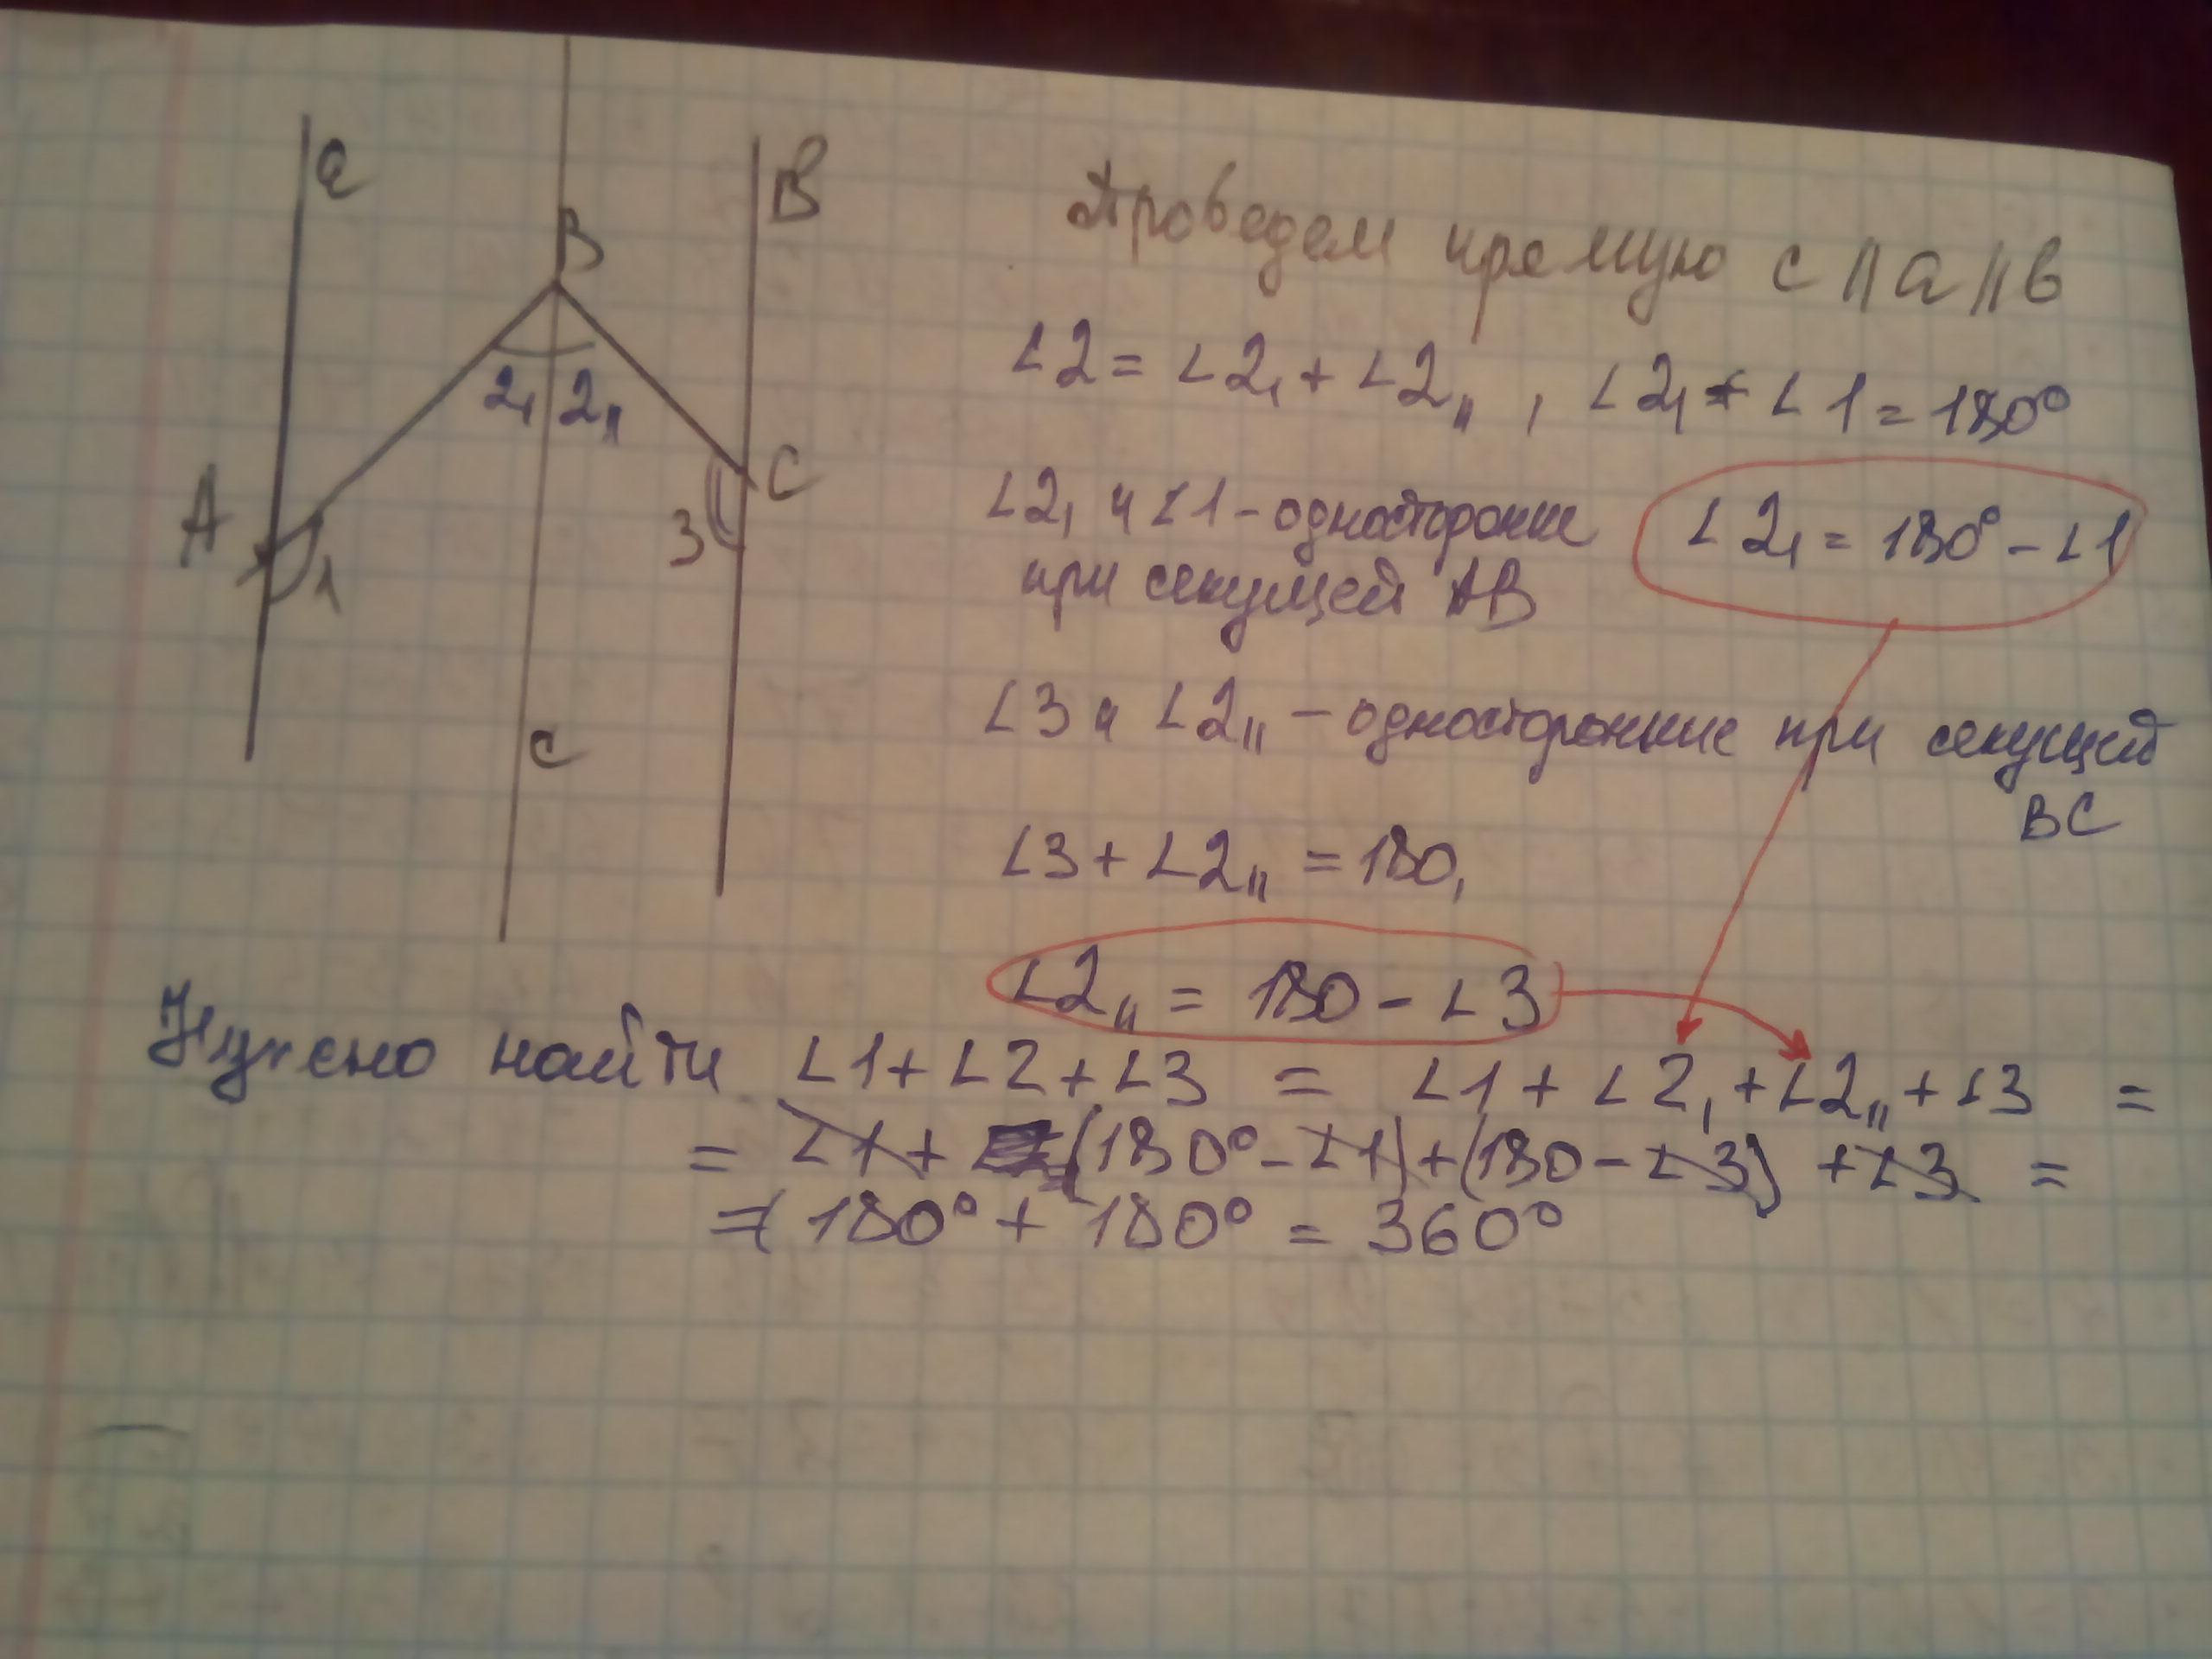 a
B
в
A
1
2₁ 2₁₁
C
3
c
Проведем прямую c || a || в
∠2 = ∠2₁ + ∠2₁₁ , ∠2₁ + ∠1 = 180°
∠2₁ и ∠1 - односторонние
при секущей AB
∠2₁ = 180° - ∠1
∠3 и ∠2₁₁ - односторонние при секущей
BC
∠3 + ∠2₁₁ = 180,
∠2₁₁ = 180 - ∠3
Нужно найти ∠1 + ∠2 + ∠3 = ∠1 + ∠2₁ + ∠2₁₁ + ∠3 =
= ∠1 + (180° - ∠1) + (180 - ∠3) + ∠3 =
= 180° + 180° = 360°